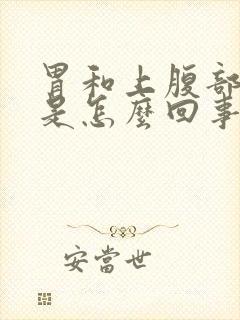 胃和上腹部
是怎麼回事
安當世